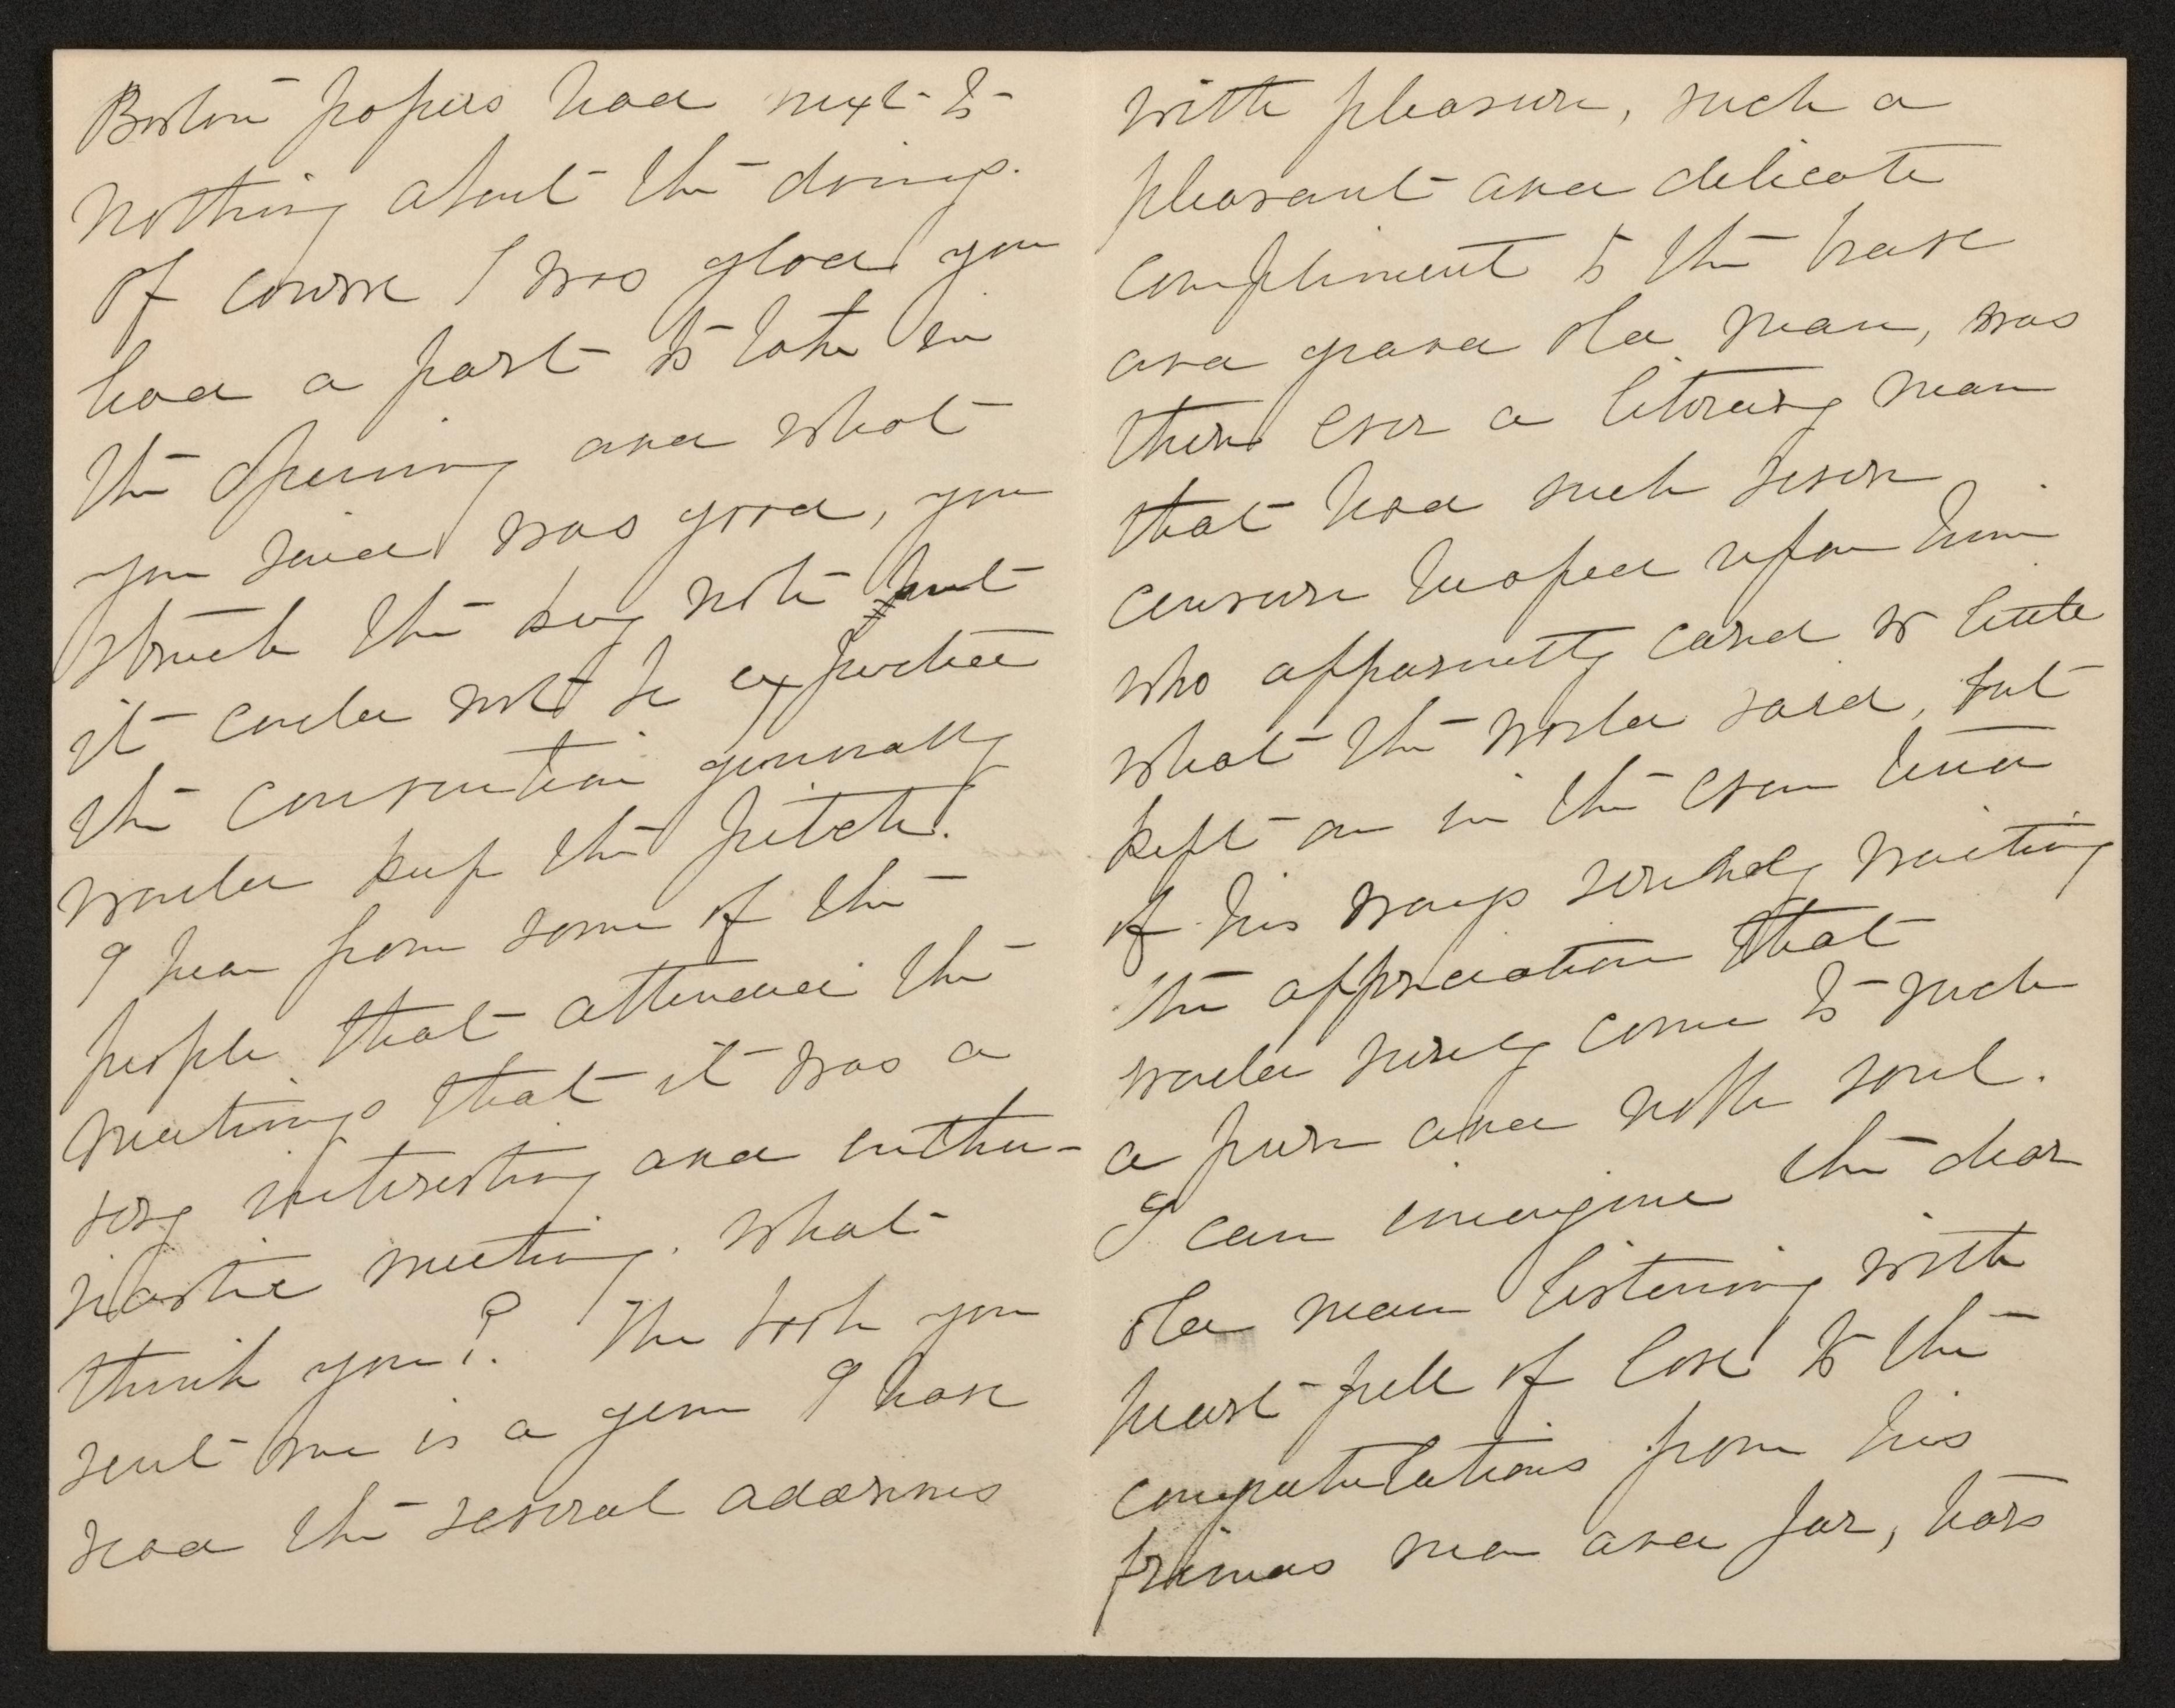 Boston papers had next to
nothing about the doings.
Of course I was glad you
had a part to take in
the opening and what
you said was good, you
struck the key note but
it could not be expected
the convention generally
would keep the pitch.
I hear from some of the
people that attended the
meetings that it was a
very interesting and enthu-
siastic meeting. What
think you? The book you
sent me is a gem I have
read the several addresses
with pleasure, such a
pleasant and delicate
compliment to the brave
and grand old man, was
there ever a literary man
that had such severe
censure heaped upon him
who apparently cared so little
what the world said, but
kept on in the even tenor
of his ways serenely waiting
the appreciation that
would surely come to such
a pure and noble soul.
I can imagine the dear
old man listening with
heart full of love to the
congratulations from his
friends near and far,